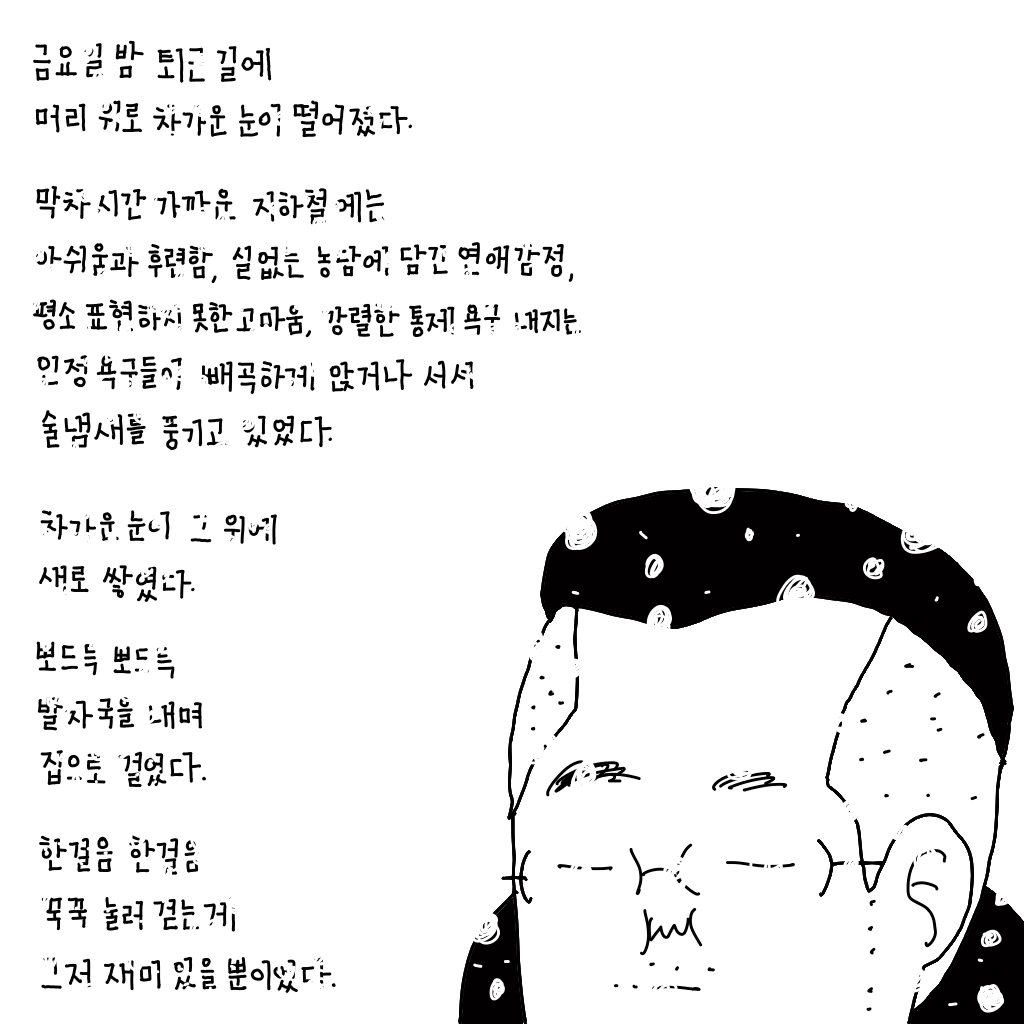 금요일 밤 퇴근 길에
머리 위로 차가운 눈이 떨어졌다.
막차 시간 가까운 지하철에는
아쉬움과 후련함, 실없는 농담에 담긴 연애 감정,
평소 표현하지 못한 고마움, 강렬한 통제 욕구 내지는
인정 욕구들이 빼곡하게 앉거나 서서
술냄새를 풍기고 있었다.
차가운 눈이 그 위에
새로 쌓였다.
뽀드득 뽀드득
발자국을 내며
집으로 걸었다.
한걸음 한걸음
꾹꾹 눌러 걷는게
그저 재미 있을 뿐이었다.